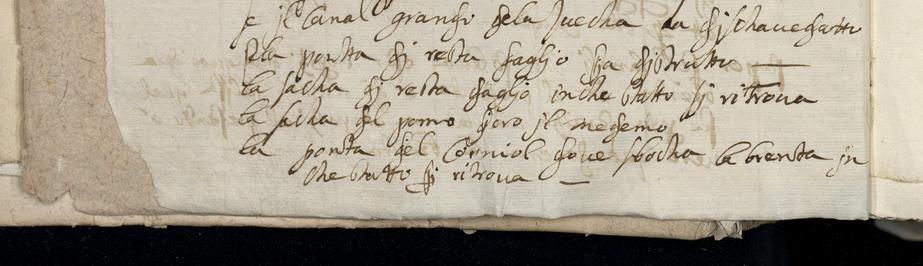 e il Canal grando dela Zuecha la dischavedatto
dela pontta di resta daglio sia distrutto
la sacha di resta daglio inche statto si ritrova
la sacha del pomo doro il medemo
la ponta del Corniol dove sbocha la brenta in
che statto si ritrova